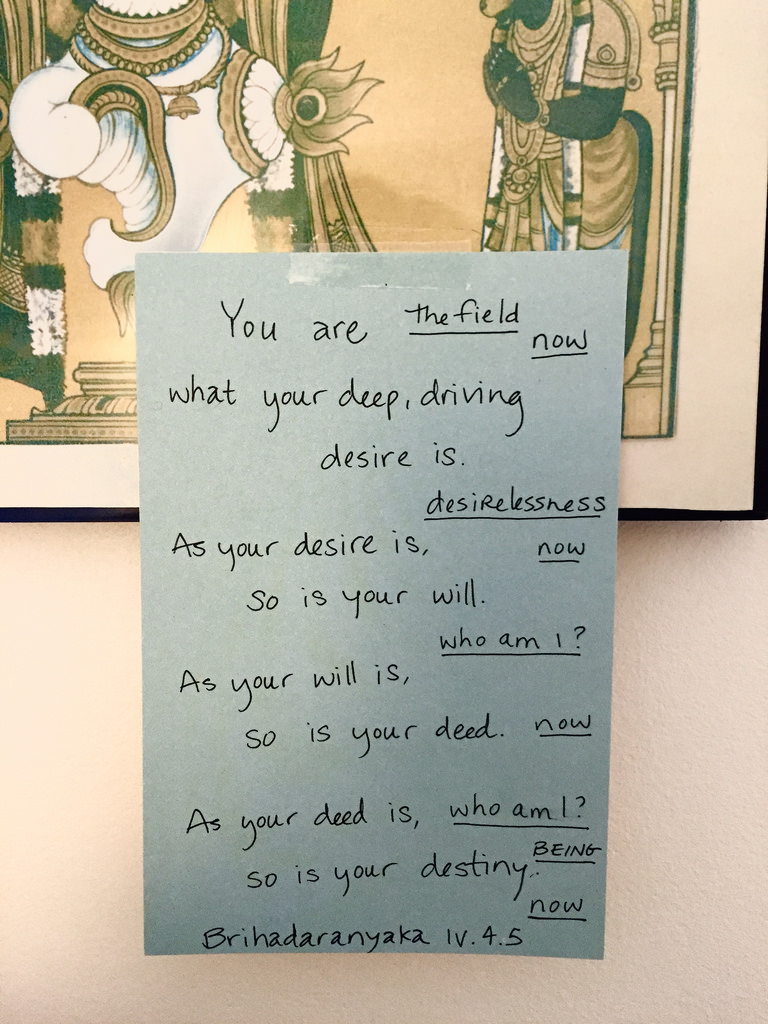 You are the field
now
what your deep, driving
desire is.
desirelessness
As your desire is,
now
so is your will.
who am I?
As your will is,
so is your deed. now
As your deed is, who am I?
BEING
so is your destiny.
now
Brihadaranyaka IV.4.5